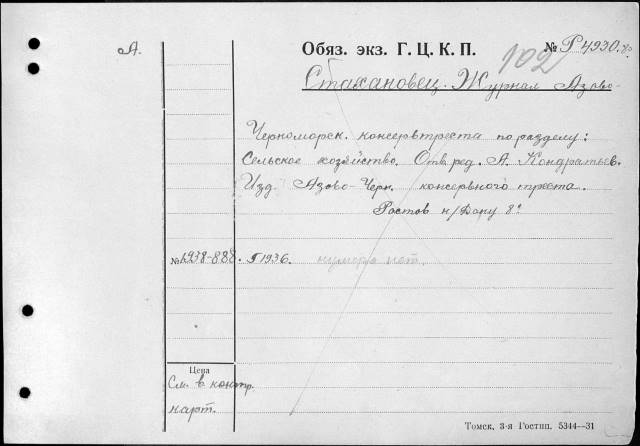 А.
Обяз. экз. Г. Ц. К. П.
102
№ Р4930.
Стахановец. Журнал Азово-
Черноморск. консервтреста по разделу:
Сельское хозяйство. Отв. ред. А. Кондратьев.
Изд. Азово-Черн. консервного треста.
Ростов н/Дону 8°
№ 1938-888. Г1936. нумера нет.
Цена
См. в контр.
карт.
Томск, 3-я Гостип. 5344—31